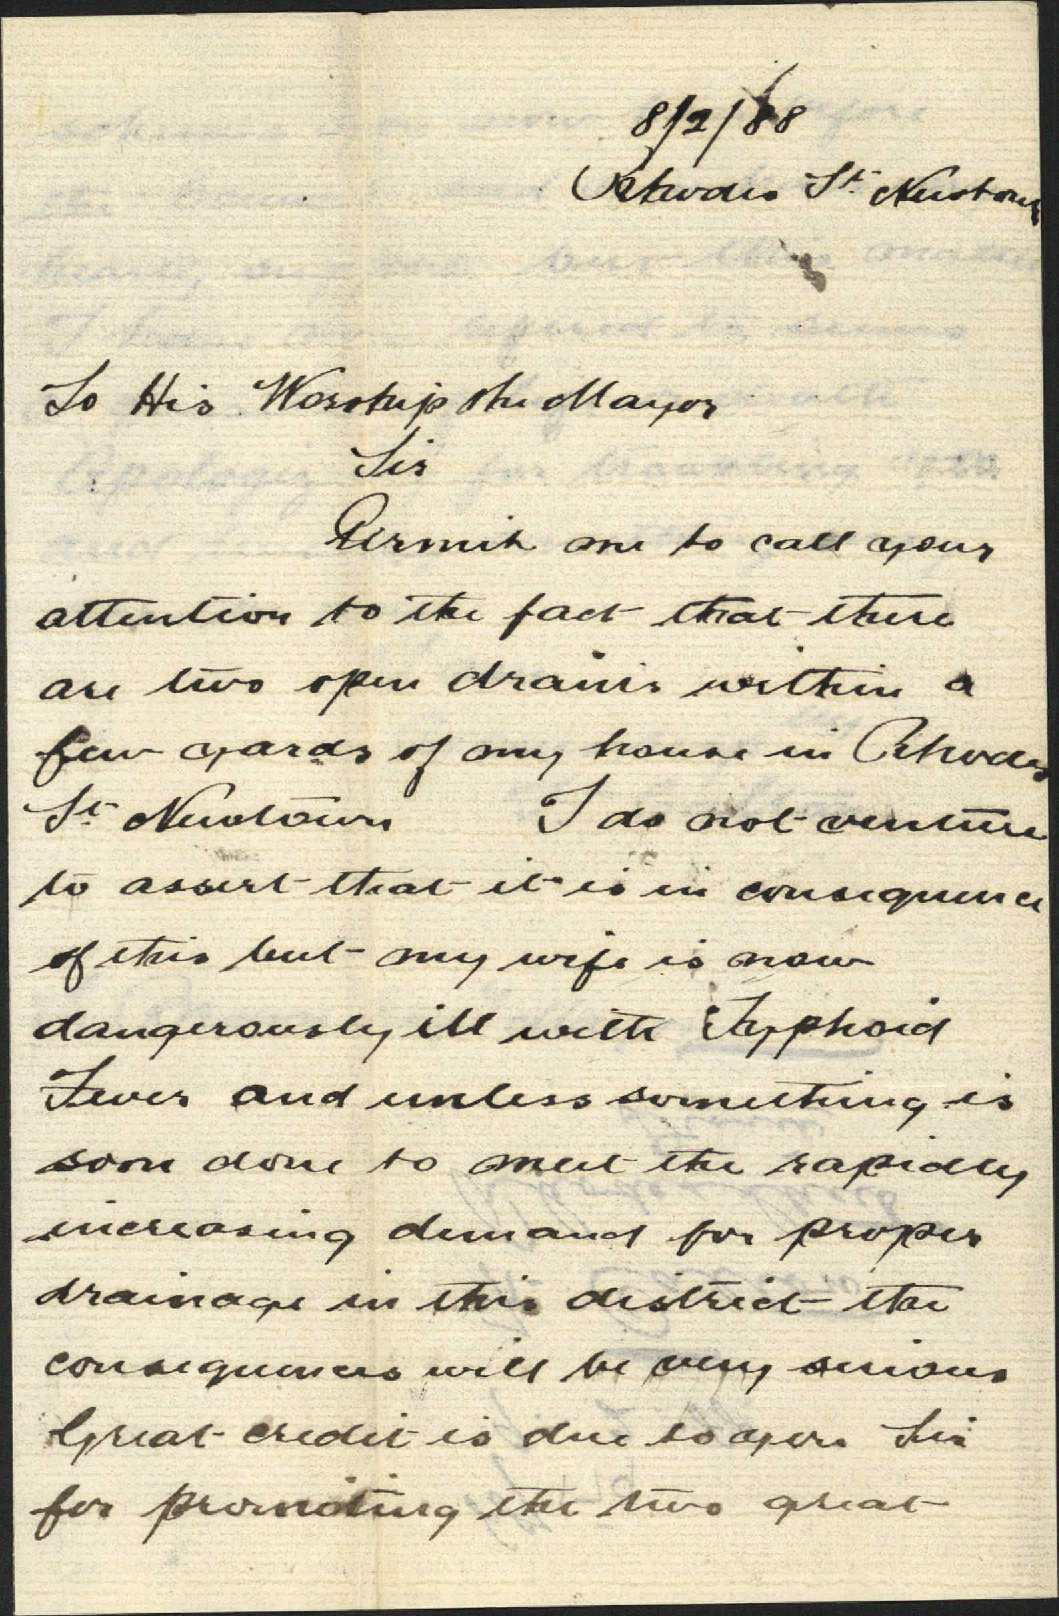 8/2/88
Rhodes St. Newtown
To His Worship the Mayor
Sir
Permit me to call your
attention to the fact that there
are two open drains within a
few yards of my house in Rhodes
St. Newtown I do not venture
to assert that it is in consequence
of this but my wife is now
dangerously ill with Typhoid
Fever and unless something is
soon done to meet the rapidly
increasing demand for proper
drainage in this district the
consequences will be very serious
Great credit is due to you Sir
for promoting the two great